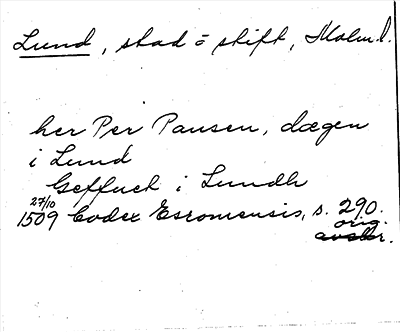 Lund, stad o stift, Malm. l.
her Per Pausen, dægen
i Lund
Geffuet i Lundh
27/10
1509 Codex Esromensis, s. 290.
orig.
avskr.